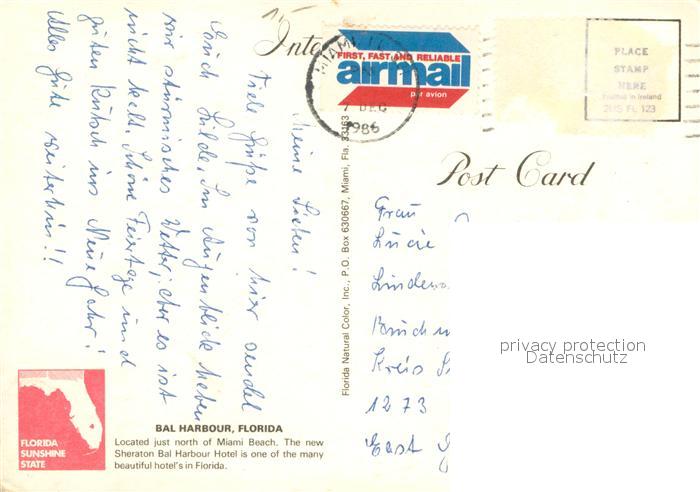 Meine Lieben!
Viele Grüße von hier sendet
Euch Hilde. Im Augenblick haben
wir stürmisches Wetter, aber es ist
nicht kalt. Schöne Feiertage und
guten Rutsch ins Neue Jahr!
Alles Gute weiterhin!!
BAL HARBOUR, FLORIDA
Located just north of Miami Beach. The new
Sheraton Bal Harbour Hotel is one of the many
beautiful hotel's in Florida.
FLORIDA
SUNSHINE
STATE
Florida Natural Color, Inc., P.O. Box 630667, Miami, Fla. 33163
15-
Inte
FIRST, FAST AND RELIABLE
airmail
par avion
MIAMI
7 DEC
1986
PLACE
STAMP
HERE
Printed in Ireland
2US FL 123
Post Card
Frau
Lucie
Kreis
1273
East
privacy protection
Datenschutz